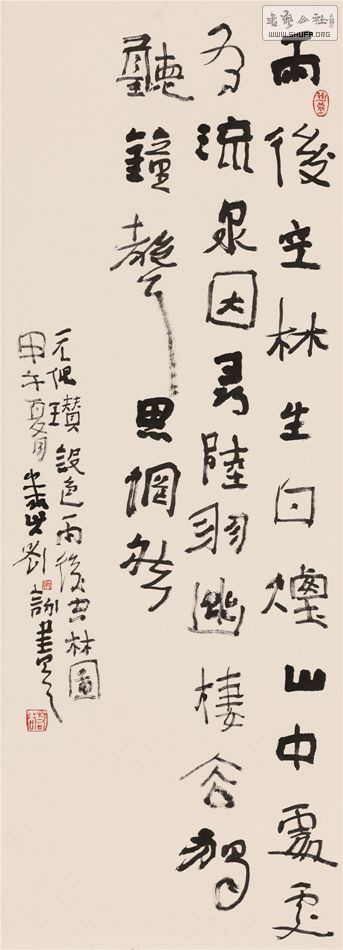 書藝公社
WWW.SHUFA.ORG
雨後空林生白煙山中處處
有流泉因尋陸羽幽棲处獨
聽鐘聲思惘然
元倪瓚設色雨後空林圖
甲午夏月劉